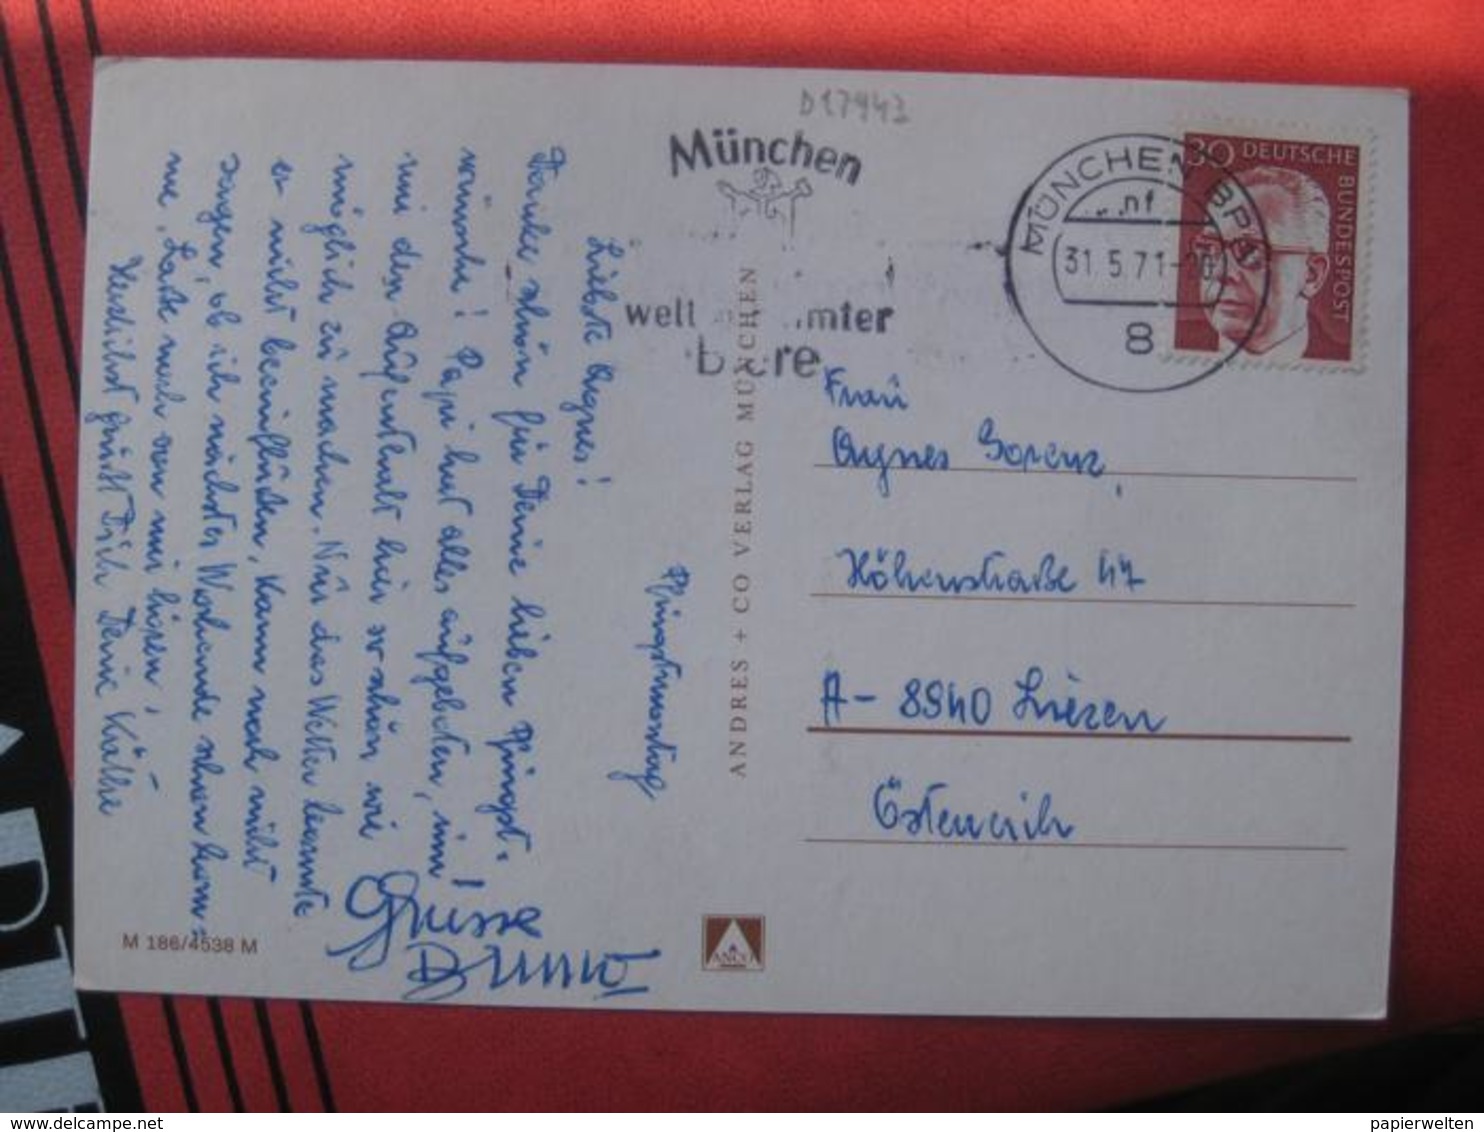 D17943
München
welt mter
b ere
MÜNCHEN BPA
nf
31.5.71-20
8
30 DEUTSCHE BUNDESPOST
Pfingstmontag
Liebste Agnes!
Danke schön für Deine lieben Pfingst-
wünsche! Papi hat alles aufgeboten, um
mir den Aufenthalt hier so schön wie
möglich zu machen. Nur das Wetter konnte
er nicht beeinflußen. Kann noch nicht
sagen, ob ich nächstes Wochende schon kom-
me. Laße noch von mir hören! -
Herzlichst grüßt Dich Deine Käthe
Grüsse
ANDRES + CO VERLAG MÜNCHEN
Frau
Agnes Lorenz,
Höhenstraße 47
A-8940 Liezen
Österreich
M 186/4538 M
ANCO
delcampe.net
papierwelten